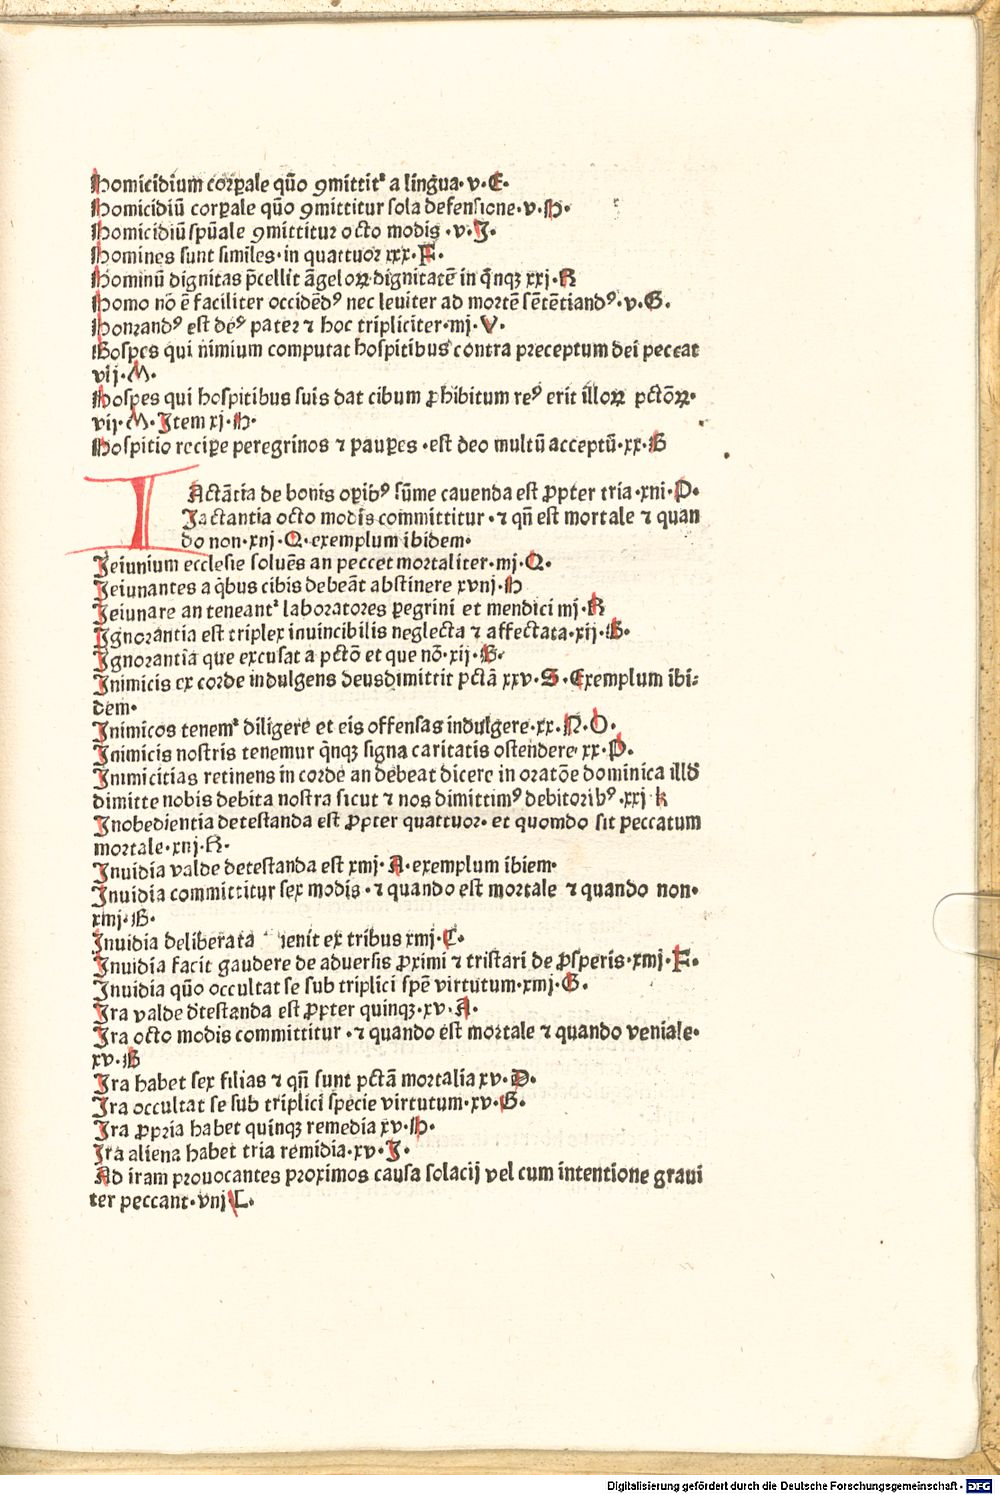 Homicidium corꝑale quo̅ ꝯmittit᷑ a lingua· v· E·
Homicidiū corꝑale quo̅ ꝯmittitur sola defensione· v· H·
Homicidiū spūale ꝯmittitur octo modis · v· J·
Homines sunt similes· in quattuor xxx· F·
Hominū dignitas p̄cellit āgeloꝝ dignitatē in q̄nqꝫ xxj· K
Homo nō ē faciliter occidēdꝰ nec leuiter ad mortē sētētiandꝰ· v· G·
Honrandꝰ est deꝰ pater ⁊ hoc tripliciter· iiij· V·
Hospes qui nimium computat hospitibus contra preceptum dei peccat
vij· M·
Hospes qui hospitibus suis dat cibum ꝓhibitum reꝰ erit illoꝝ pctōꝝ·
vij· M· Item xj· H·
Hospitio recipe peregrinos ⁊ pauꝑes · est deo multū acceptū· xx· B
IActātia de bonis oꝑibꝰ sūme cauenda est ꝓpter tria · xiij· P·
Jactantia octo modis committitur · ⁊ qn̄ est mortale ⁊ quan
do non· xiij· Q· exemplum ibidem·
Jeiunium ecclesie soluēs an peccet mortaliter· iiij· Q·
Jeiunantes a q̇bus cibis debeāt abstinere xviij· H
Jeiunare an teneant᷑ laboratores ꝑegrini et mendici iiij· R
Ignorantia est triplex inuincibilis neglecta ⁊ affectata· xij· B·
Ignorantia que excusat a pctō et que nō· xij· B·
Inimicis ex corde indulgens deus dimittit pctā xxv· S · Exemplum ibi⸗
dem·
Inimicos tenem᷑ diligere et eis offensas indulgere· xx· N· O·
Inimicis nostris tenemur q̄nqꝫ signa caritatis ostendere· xx· P·
Inimicitias retinens in corde an debeat dicere in oratōe dominica illd̄
dimitte nobis debita nostra sicut ⁊ nos dimittimꝰ debitoribꝰ · xxj k
Inobedientia detestanda est ꝓpter quattuor· et quomdo sit peccatum
mortale· xiij· K·
Inuidia valde detestanda est xiiij· A· exemplum ibiem·
Inuidia committitur sex modis · ⁊ quando est mortale ⁊ quando non·
xiiij· B·
Inuidia deliberata ienit ex tribus xiiij· C·
Inuidia facit gaudere de aduersis ꝓximi ⁊ tristari de ꝓsperis· xiiij· F·
Inuidia quo̅ occultat se sub triplici spē virtutum· xiiij· G·
Ira valde d̄testanda est ꝓpter quinqꝫ· xv· A·
Ira octo modis committitur · ⁊ quando est mortale ⁊ quando veniale·
xv· B
Ira habet sex filias ⁊ qn̄ sunt pctā mortalia xv· D·
Ira occultat se sub triplici specie virtutum· xv· G·
Ira ꝓpria habet quinqꝫ remedia xv· H·
Ira aliena habet tria remidia· xv· J·
Ad iram prouocantes proximos causa solacij vel cum intentione graui
ter peccant· viij L·
Digitalisierung gefördert durch die Deutsche Forschungsgemeinschaft · DFG